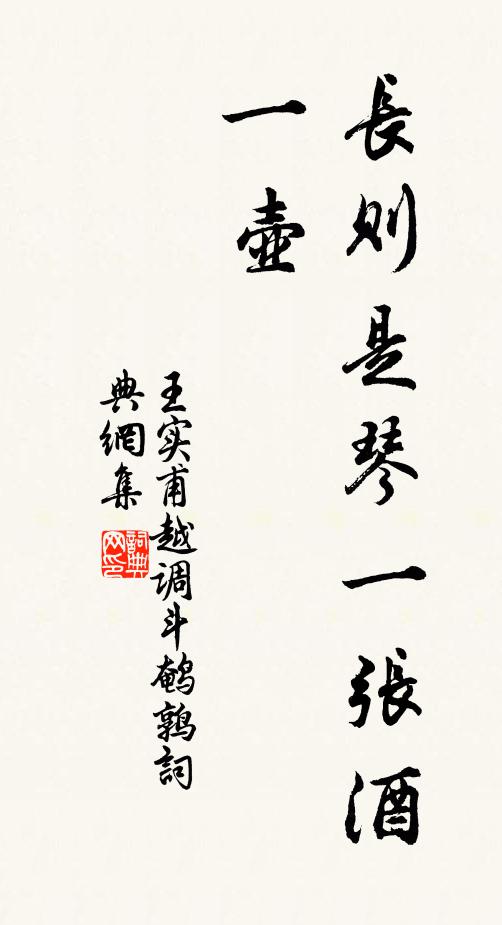 長則是琴一張酒
一壺
王实甫越调斗鹌鹑詞
典網集
詞典
网印